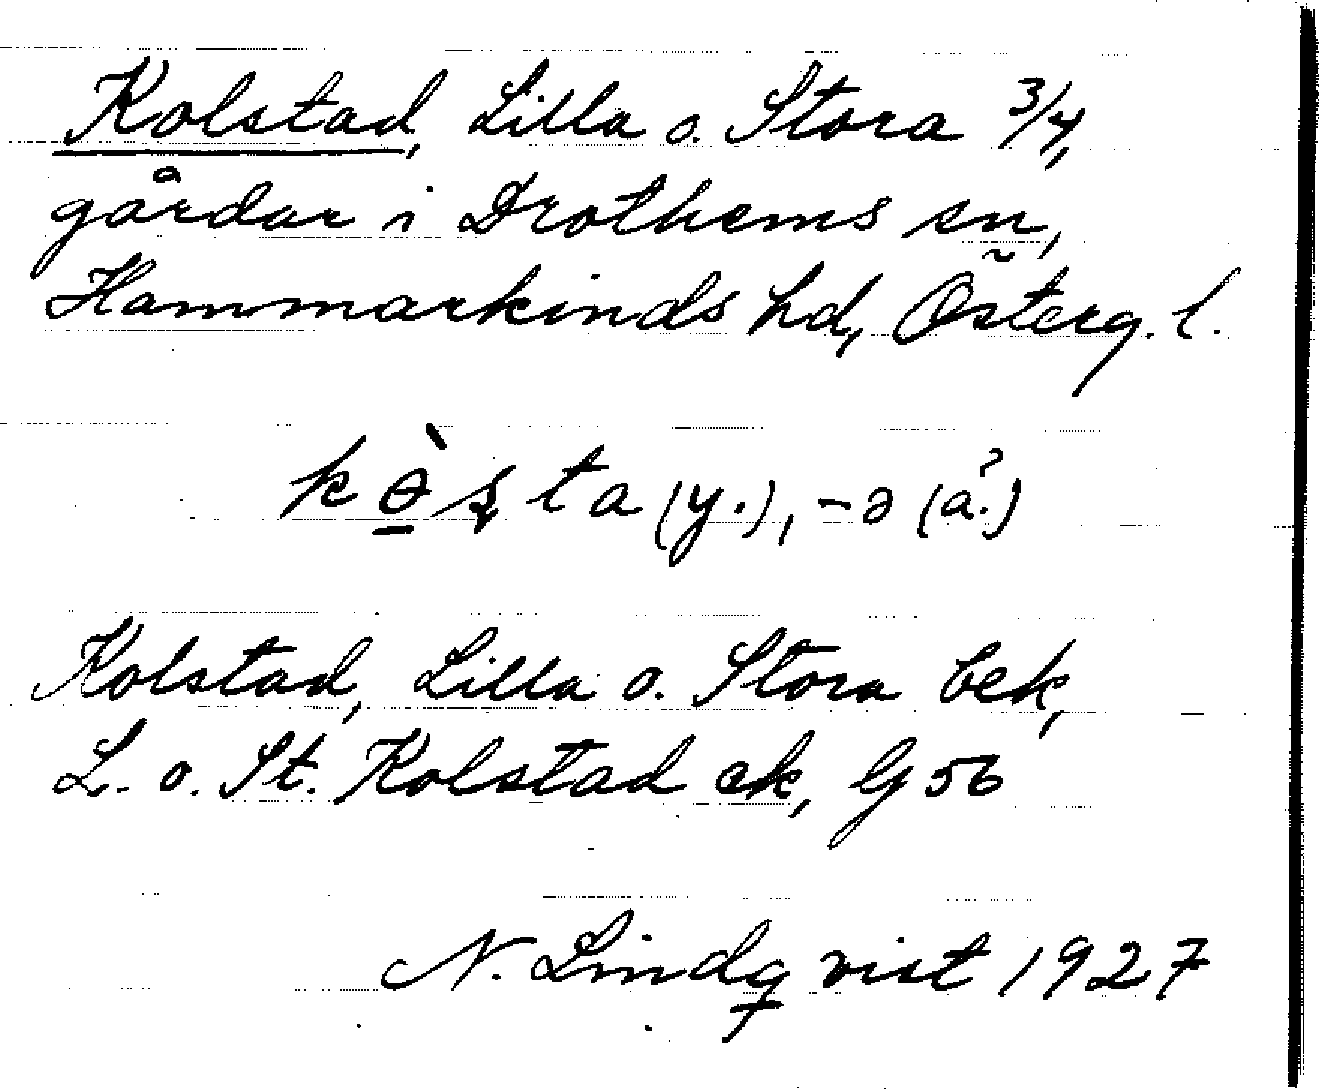 Kolstad, Lilla o. Stora 3/4,
gårdar i Drothems sn,
Hammarkinds hd, Österg. l.
kɵ̀ʂta (y.), -ə (ä?)
Kolstad, Lilla o. Stora bek,
L. o. St. Kolstad ek, G 56
N. Lindqvist 1927